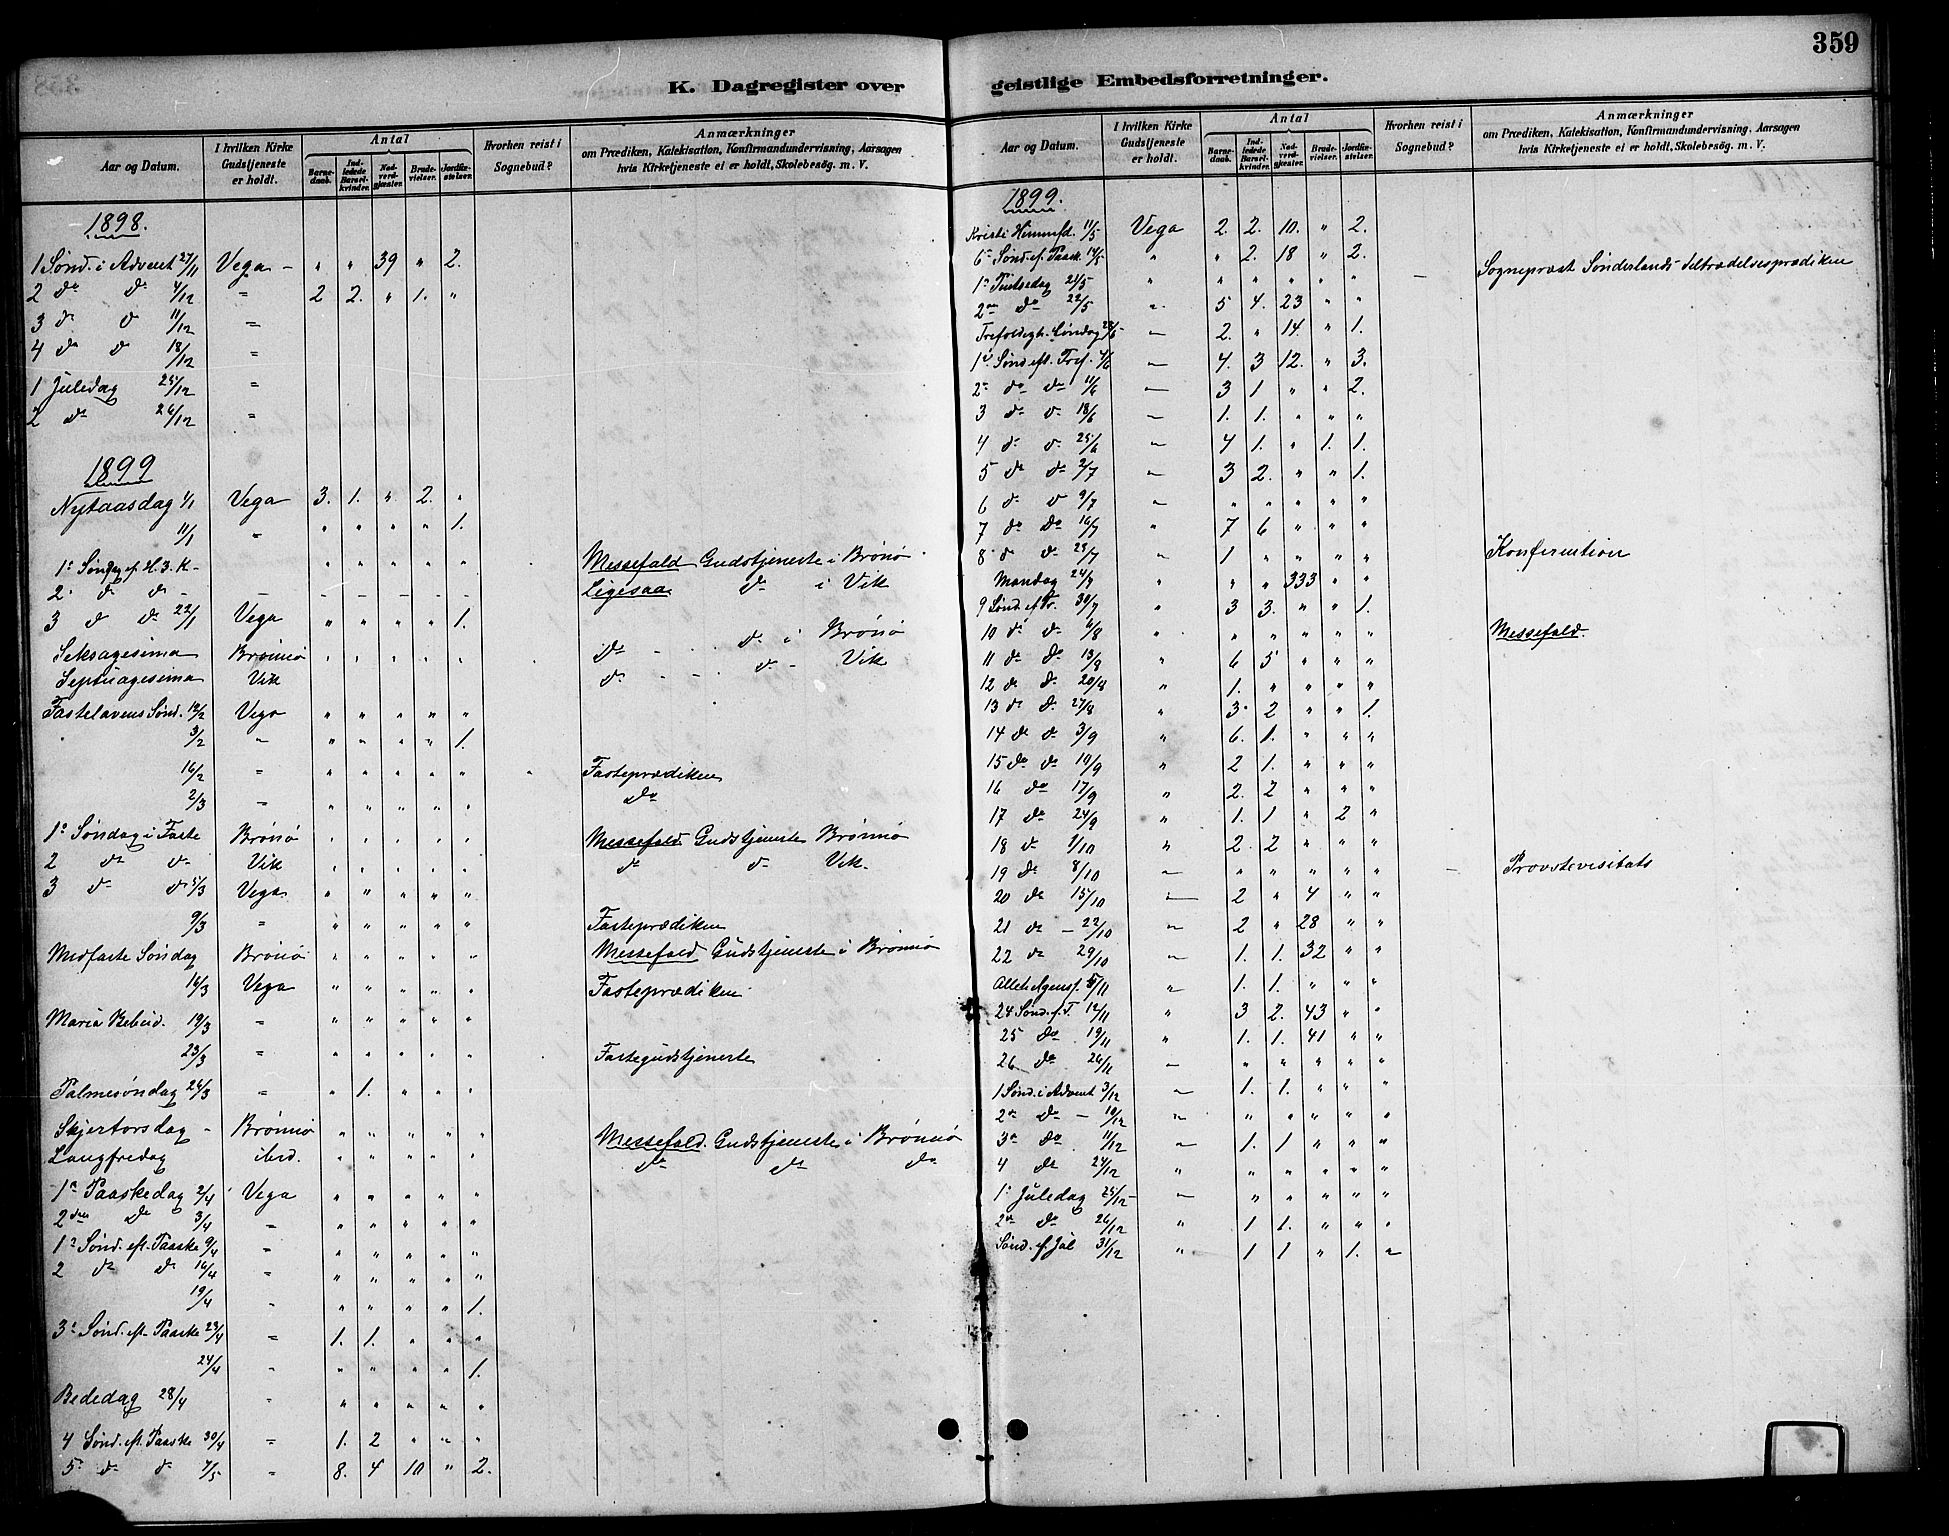 359
K. Dagregister over geistlige Embedsforretninger.
Aar og Datum. | I hvilken Kirke Gudstjeneste er holdt. | Antal | Barnedaab. | Indledede Barselkvinder. | Nadverdgjæster. | Brudevielser. | Jordfæstelser. | Hvorhen reist i Sognebud? | Anmærkninger om Prædiken, Katekisation, Konfirmandundervisning, Aarsagen hvis Kirketjeneste ei er holdt, Skolebesøg. m. V.
1898.
1 Sønd. i Advent 27/11 Vega - " " 39 " 2.
2 do do 4/12 = 2 2. " 1. "
3 d d 11/12 =
4 do d 18/12 =
1 Juledag 25/12 =
2 do 26/12 =
1899
Nytaasdag 1/1 Vega 3. 1. " 2. "
11/1 " " " " " 1.
1e Søndag ef. H. 3. K - " " " " " Messefald Gudstjeneste i Brønø
2. d d - - - - - - Ligesaa do i Vik
3 d do 22/1 Vega " " " " 1.
Seksagesima Brønnø " " " " " do - do i Brønø
Septuagesima Vik do - - do - Vik
Fastelavens Sønd. 12/2 Vega " " " " "
3/2 " " " " " 1.
16/2 = " " " " " Fasteprædiken
2/3 = " " " " " do
1e Søndag i Faste Brønø " " " " " Messefald Gudstjeneste Brønnø
2 do do Vik " " " " " do do Vik.
3 do d 5/3 Vega " " " " "
9/3 = " " " " " Fasteprædiken
Midfaste Søndag Brønø " " " " " Messefald Gudstjeneste i Brønnø
16/3 Vega " " " " " Fasteprædiken
Maria Bebud. 19/3 = " " " " "
23/3 = " " " " " Fastegudstjeneste
Palmesøndag 26/3 = " 1. " " "
Skjertorsdag - Brønnø " " " " " Messefald. Gudstjeneste i Brønnø
Langfredag ibid. " " " " " do do do
1e Paaskedag 2/4 Vega " " " " "
2den do 3/4 = " " " " "
1e Sønd. eft. Paaske 9/4 = " " " " "
2 do do 16/4 = " " " " "
19/4 " " " " " 1.
3e Sønd. eft. Paaske 23/4 = 1. 1. " " "
24/4 " " " " " 1.
Bededag 28/4 " " " " " "
4 Sønd. eft. Paaske 30/4 = 1. 2 " " "
5e do d 7/5 " 8. 4 10 " 2.
Aar og Datum. | I hvilken Kirke Gudstjeneste er holdt. | Antal | Barnedaab. | Indledede Barselkvinder. | Nadverdgjæster. | Brudevielser. | Jordfæstelser. | Hvorhen reist i Sognebud? | Anmærkninger om Prædiken, Katekisation, Konfirmandundervisning, Aarsagen hvis Kirketjeneste ei er holdt, Skolebesøg. m. V.
1899.
Kristi Himmelfd. 11/5 Vega 2. 2. 10. " 2.
6e Sønd. ef. Paask. 14/5 " " 2. 18 " 2. Sogneprest Sønderlands tiltrædelsesprædiken
1e Pintsedag 21/5 " " " " " "
2en do 22/5 " 5 4. 23 " "
Trefoldigh. Søndag 28/5 " 2. " 14. " 1.
1e Sønd. eft. Tref. 4/6 " 4. 3 12. " 3.
2e do do 11/6 " 3 1 " " 2.
3 do d 18/6 " 1. 1. " " "
4 d d 25/6 " 4 1. " 1. 1.
5 do do 2/7 " 3 2. " " 1.
6 d d 9/7 " " " " " "
7 do do 16/7 " 7 6 " " "
8 d d 23/7 " 1 " " " " Konfirmation
Mandag 24/7 " " " 333 " "
9 Sønd. ef Tr. 30/7 " 3 3. " " 1.
10 do do 6/8 " " " " " " Messefald.
11 do do 13/8 " 6 5 " " "
12 do do 20/8 " 1. " " " "
13 do do 27/8 " 3. 2 " " 1.
14 do do 3/9 " 6. 1. " " "
15 do do 10/9 " 2 1. " " "
16 do 17/9 " 2. 2 " " "
17 do 24/9 " 1. 1 " 2 "
18 d 1/10 " 2. 2 " " "
19 do 8/10 " " " " " " Provstevisitats
20 do 15/10 " 2 " 4 " "
21 d - 22/10 " 2 " 28 " "
22 do 29/10 " 1. 1. 32 " "
5/11 " 1. 1. " " "
24 Sønd. ef. T. 12/11 " 3 2. 43 " "
25 do 19/11 " 1. 1. 41 " "
26 do 26/11 " " " " " "
1 Sønd. i Advent 3/12 " 1. 1. " " "
2en do - 10/12 " " " " " "
3e do 11/12 " 1. 1 " " "
4 do 24/12 " " " " " "
1e Juledag 25/12 - " " " " " "
2en do 26/12 " 1 1. " " "
Sønd. ef Jul 31/12 " 1 1 " 1. "